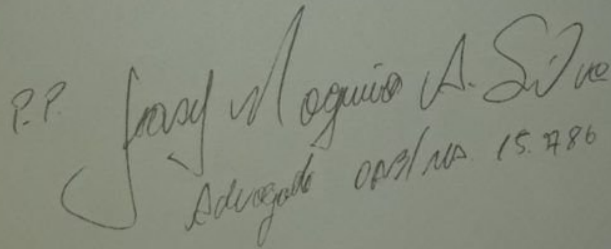 P.P. Nogueira A. Silva
Advogado OAB/MA 15.786